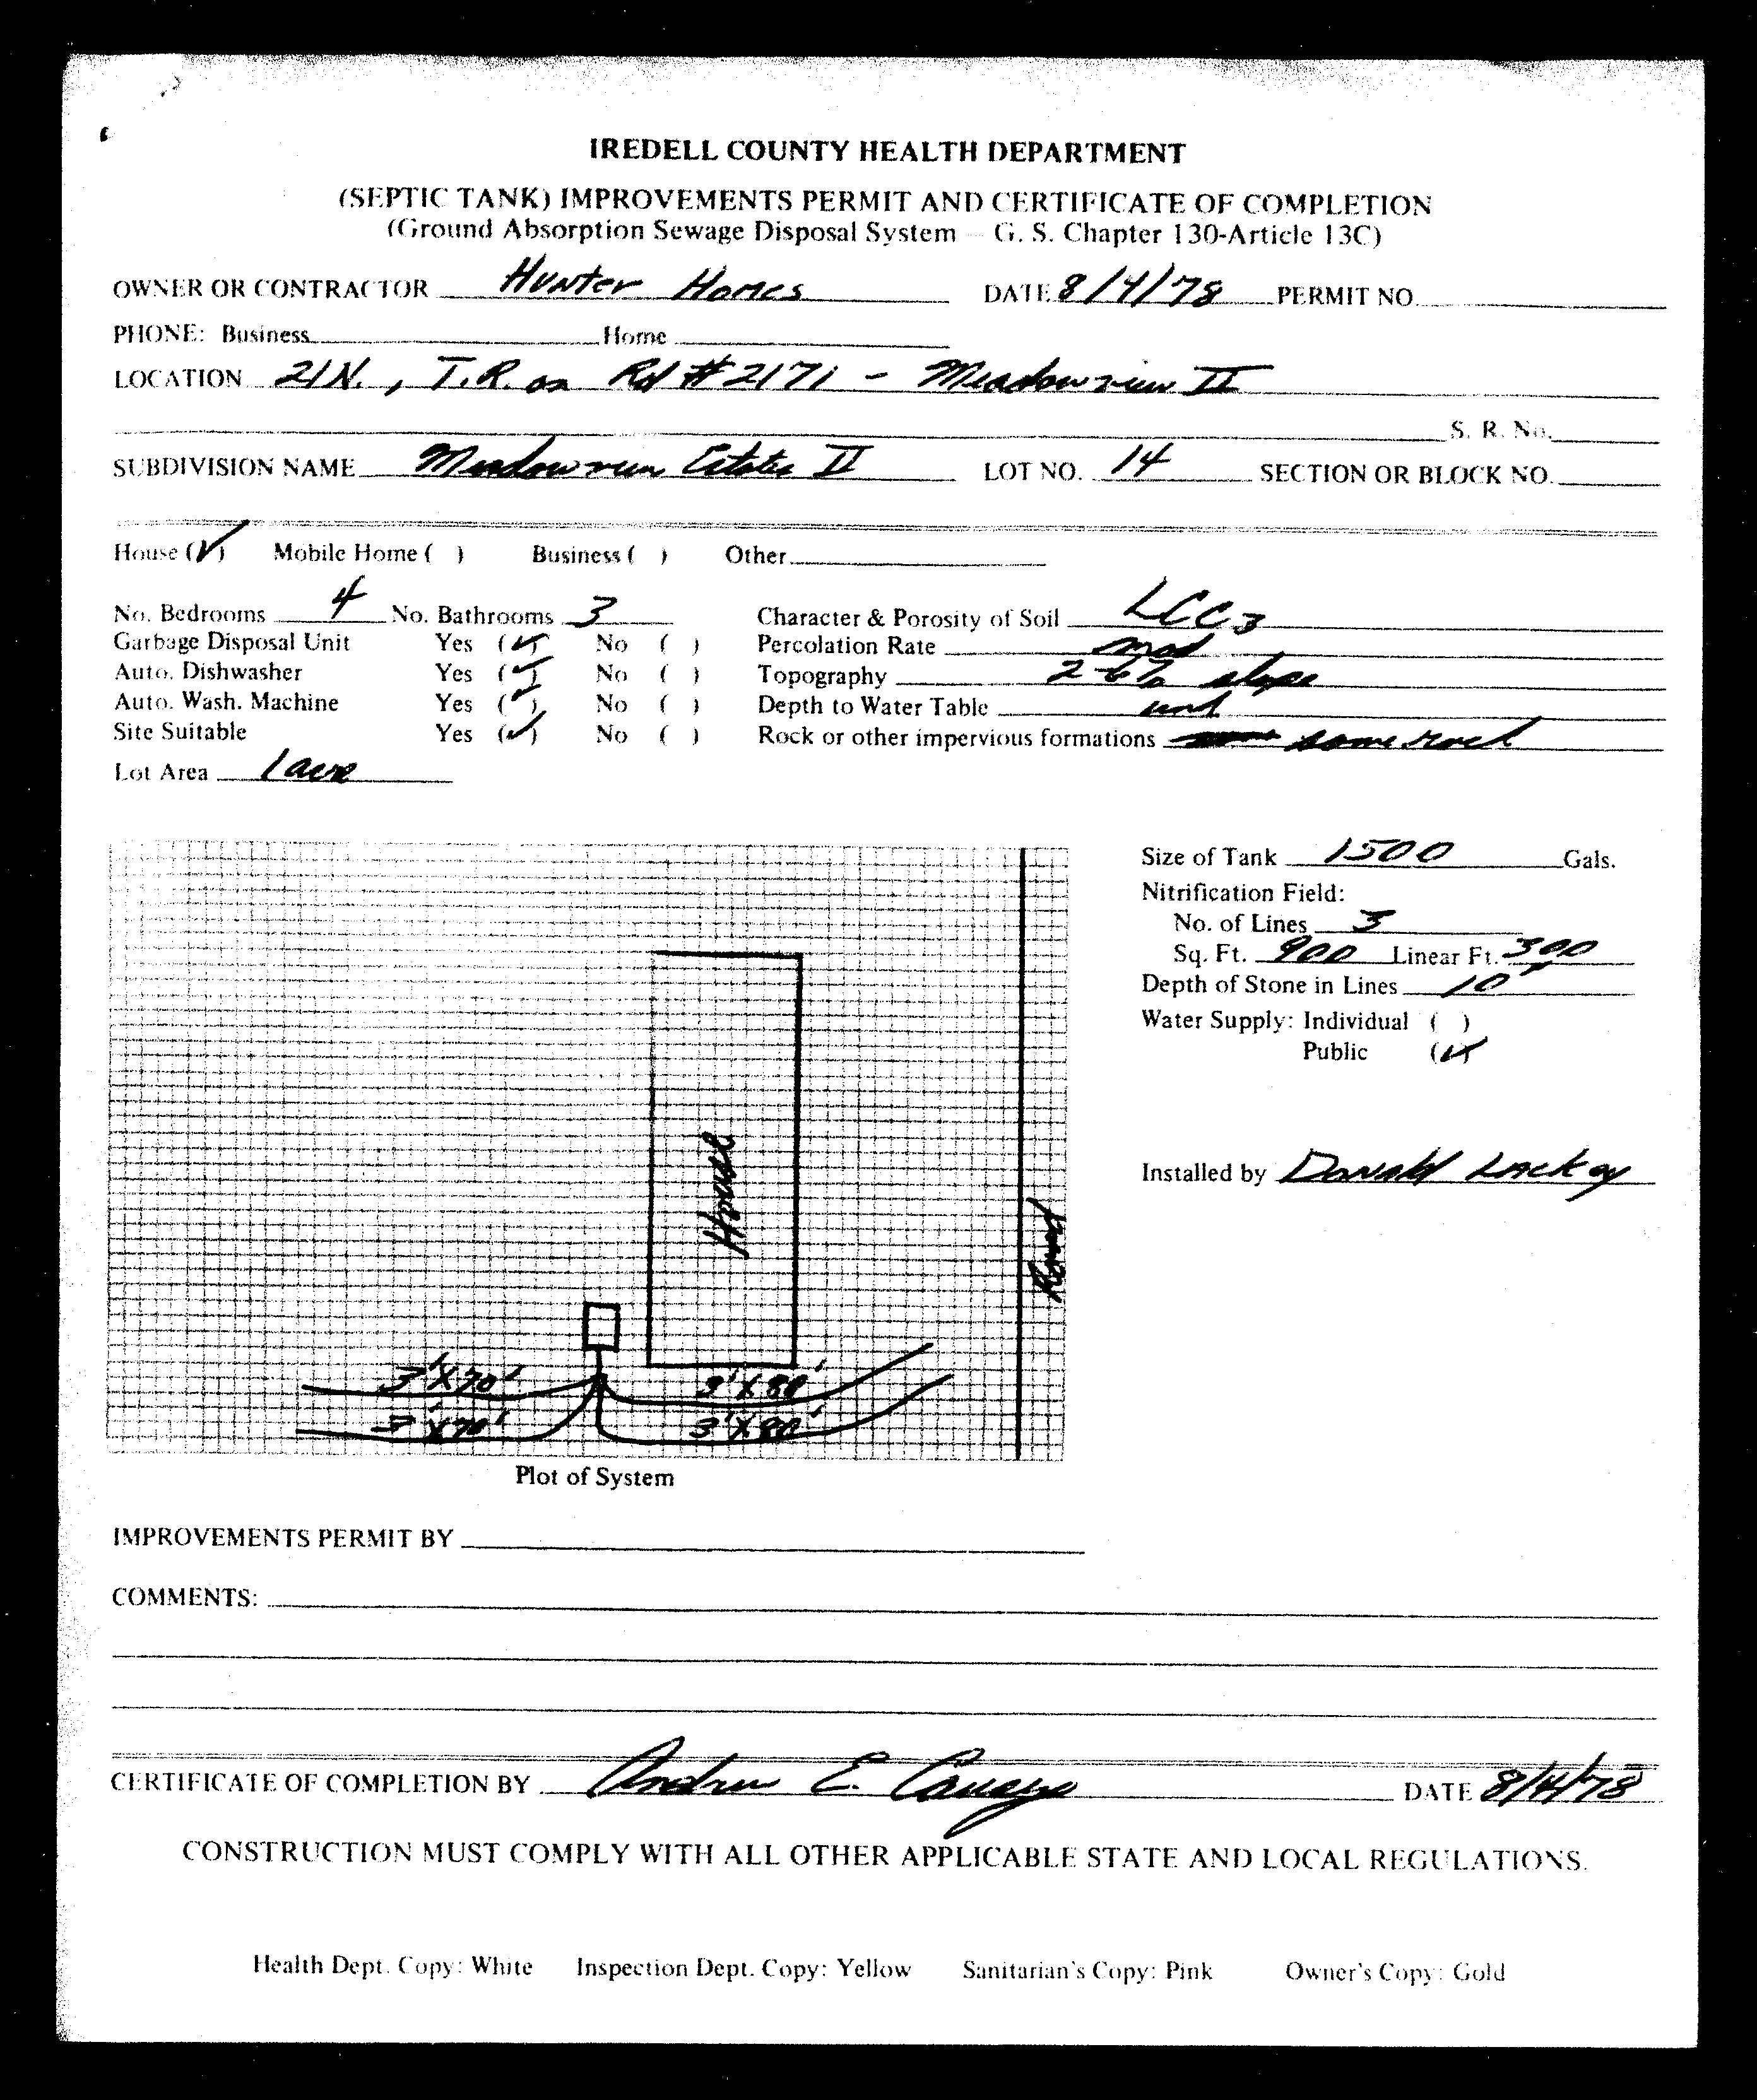 IREDELL COUNTY HEALTH DEPARTMENT
(SEPTIC TANK) IMPROVEMENTS PERMIT AND CERTIFICATE OF COMPLETION
(Ground Absorption Sewage Disposal System – G. S. Chapter 130-Article 13C)
OWNER OR CONTRACTOR Hunter Homes DATE 8/4/78 PERMIT NO.
PHONE: Business Home
LOCATION 21N., T.R. on Rd #2171 - Meadowrun II
S. R. No.
SUBDIVISION NAME Meadowrun Estates II LOT NO. 14 SECTION OR BLOCK NO.
House (✓) Mobile Home ( ) Business ( ) Other
No. Bedrooms 4 No. Bathrooms 3 Character & Porosity of Soil LCC3
Garbage Disposal Unit Yes (✓) No ( ) Percolation Rate mod
Auto. Dishwasher Yes (✓) No ( ) Topography 2-6% slope
Auto. Wash. Machine Yes (✓) No ( ) Depth to Water Table
Site Suitable Yes (✓) No ( ) Rock or other impervious formations some rock
Lot Area 1 acre
Size of Tank 1500 Gals.
Nitrification Field:
No. of Lines
Sq. Ft. 900 Linear Ft. 300
Depth of Stone in Lines 10"
Water Supply: Individual ( )
Public (✓)
Installed by Donald Lackey
House
Road
3'X70' 3'X80'
3'X70' 3'X80'
Plot of System
IMPROVEMENTS PERMIT BY
COMMENTS:
CERTIFICATE OF COMPLETION BY Andrew E. DATE 8/4/78
CONSTRUCTION MUST COMPLY WITH ALL OTHER APPLICABLE STATE AND LOCAL REGULATIONS.
Health Dept. Copy: White Inspection Dept. Copy: Yellow Sanitarian's Copy: Pink Owner's Copy: Gold